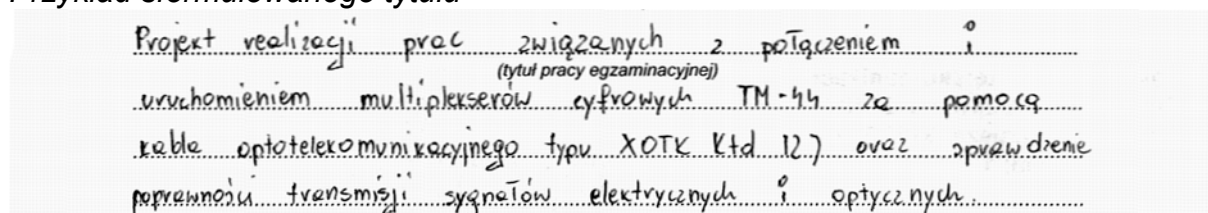 Przykład sformułowanego tytułu
Projekt realizacji prac związanych z połączeniem i
(tytuł pracy egzaminacyjnej)
uruchomieniem multiplekserów cyfrowych TM-44 za pomocą
kabla optotelekomunikacyjnego typu XOTK Ktd 12J oraz sprawdzenie
poprawności transmisji sygnałów elektrycznych i optycznych.